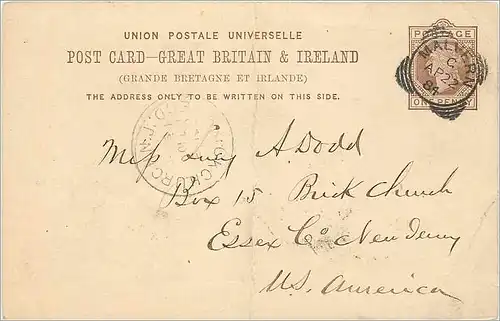 UNION POSTALE UNIVERSELLE
POST CARD—GREAT BRITAIN & IRELAND
(GRANDE BRETAGNE ET IRLANDE)
THE ADDRESS ONLY TO BE WRITTEN ON THIS SIDE.
POSTAGE
ONE PENNY
MALVERN
C
AP 23
84
Miss Lucy A. Dodd
Box 15 Brick Church
Essex Co New Jersey
U.S. America